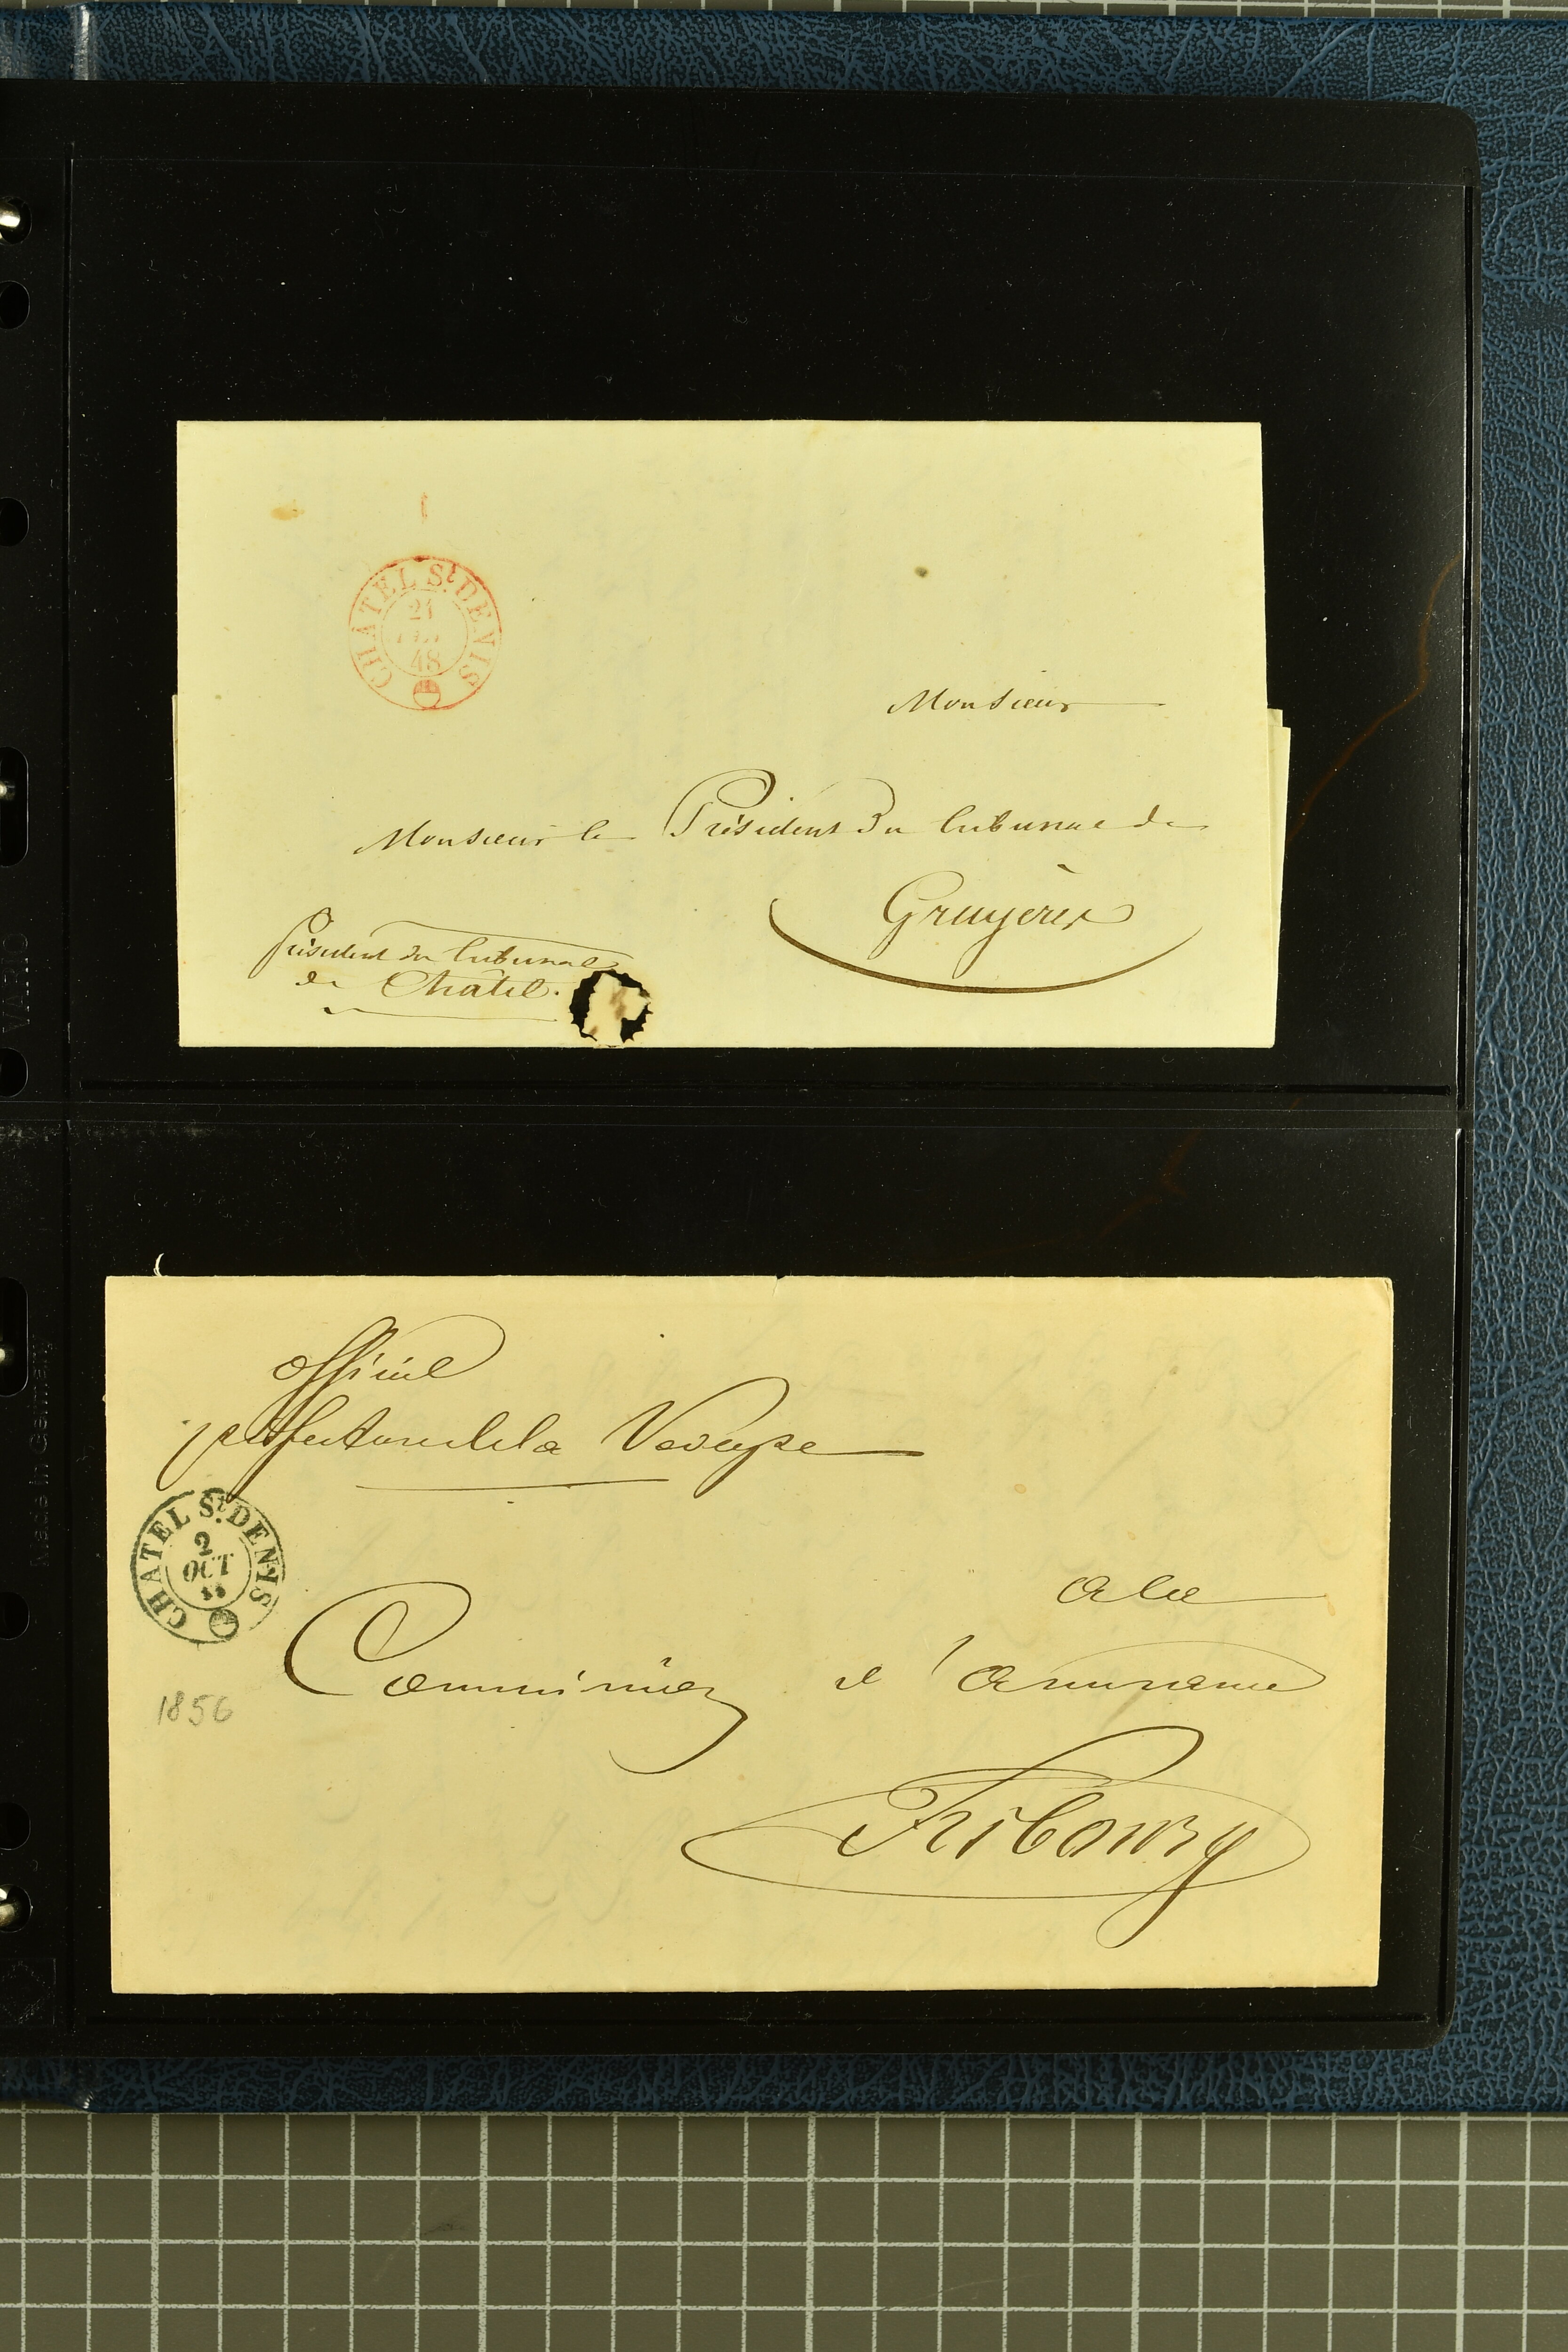 CHATEL St. DENIS
21
48
Monsieur
Monsieur le Président du tribunal de
Gruyères
Président du tribunal
de Châtel.
officiel
préfecture de la Veveyse
CHATEL St. DENIS
2
OCT
1856
a la
Commission d'assurance
Fribourg
VARIO
Made in Germany